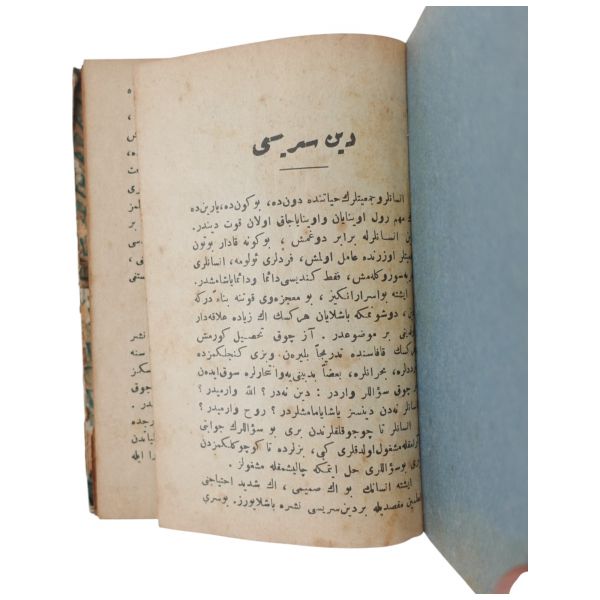 دين سريسى
انسانلر وجمعيتلرك حياتنده دون‌ده، بوكون‌ده، يارين‌ده
مهم رول اوينايان واوينايه‌جاق اولان قوت ديندر.
انسانلرله برابر دوغمش، بوكونه قادار بوتون
اوزرنده عامل اولمش، فردلرى ئولومه، انسانلرى
سوروكله‌مش، فقط كنديسى دائما ودائما ياشامشدر.
ايشته بو اسرارانكيز، بو معجزه‌وى قوتنه بناءً دركه
دوشونمكه باشلايان هركسك اك زياده علاقه‌دار
بر موضوعدر. آز چوق تحصيل كورمش
قافاسنده تدريجاً بليره‌ن، وبزى كنجلكمزده
بحرانلره، بعضاً بدبينى‌يه وانتحارلره سوق ايده‌ن
چوق سؤاللر واردر: دين نه‌در؟ الله وارميدر؟
انسانلر نه‌دن دينسز ياشايامامشلردر؟ روح وارميدر؟
انسانلر تا چوجوقلقلرندن برى بو سؤاللرك جوابنى
مشغول اولدقلرى كبى، بزلرده تا كوچوكلكمزدن
برى بو سؤاللرى حل ايتمكه چاليشمقله مشغولز.
ايشته انسانك بو اك صميمى، اك شديد احتياجنى
مقصديله بر دين سريسى نشره باشلايورز. بو سرى
نشر
سنه
چوق
ايله